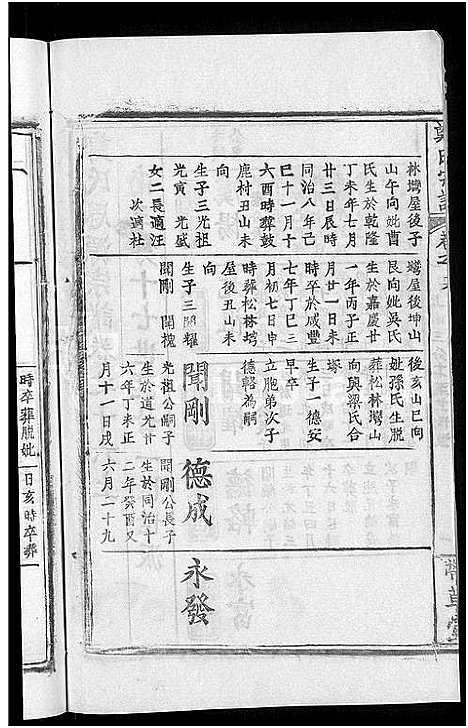 鄭氏宗譜
林塆屋後子
山午向妣曹
氏生於乾隆
丁未年七月
廿三日辰時
同治八年己
巳十一月十
六酉時葬鼓
鹿村丑山未
向
生子三光祖
光寅 光盛
女二長適汪
次適杜
塆屋後坤山
艮向妣吳氏
生於嘉慶廿
一年丙子正
月廿一日未
時卒於咸豐
七年丁巳三
月初七日申
時葬松林塆
屋後丑山未
向
生子三開耀
開剛 開槐
後亥山巳向
妣孫氏生脱
葬松林塆山
向與梁氏合
塚
生子一德安
早卒
立胞弟次子
德輅為嗣
聞剛
光祖公嗣子
生於道光廿
六年丁未正
月十一日戌
德成
開剛公長子
生於同治十
二年癸酉又
六月二十九
永發
時卒葬脱妣
日亥時卒葬